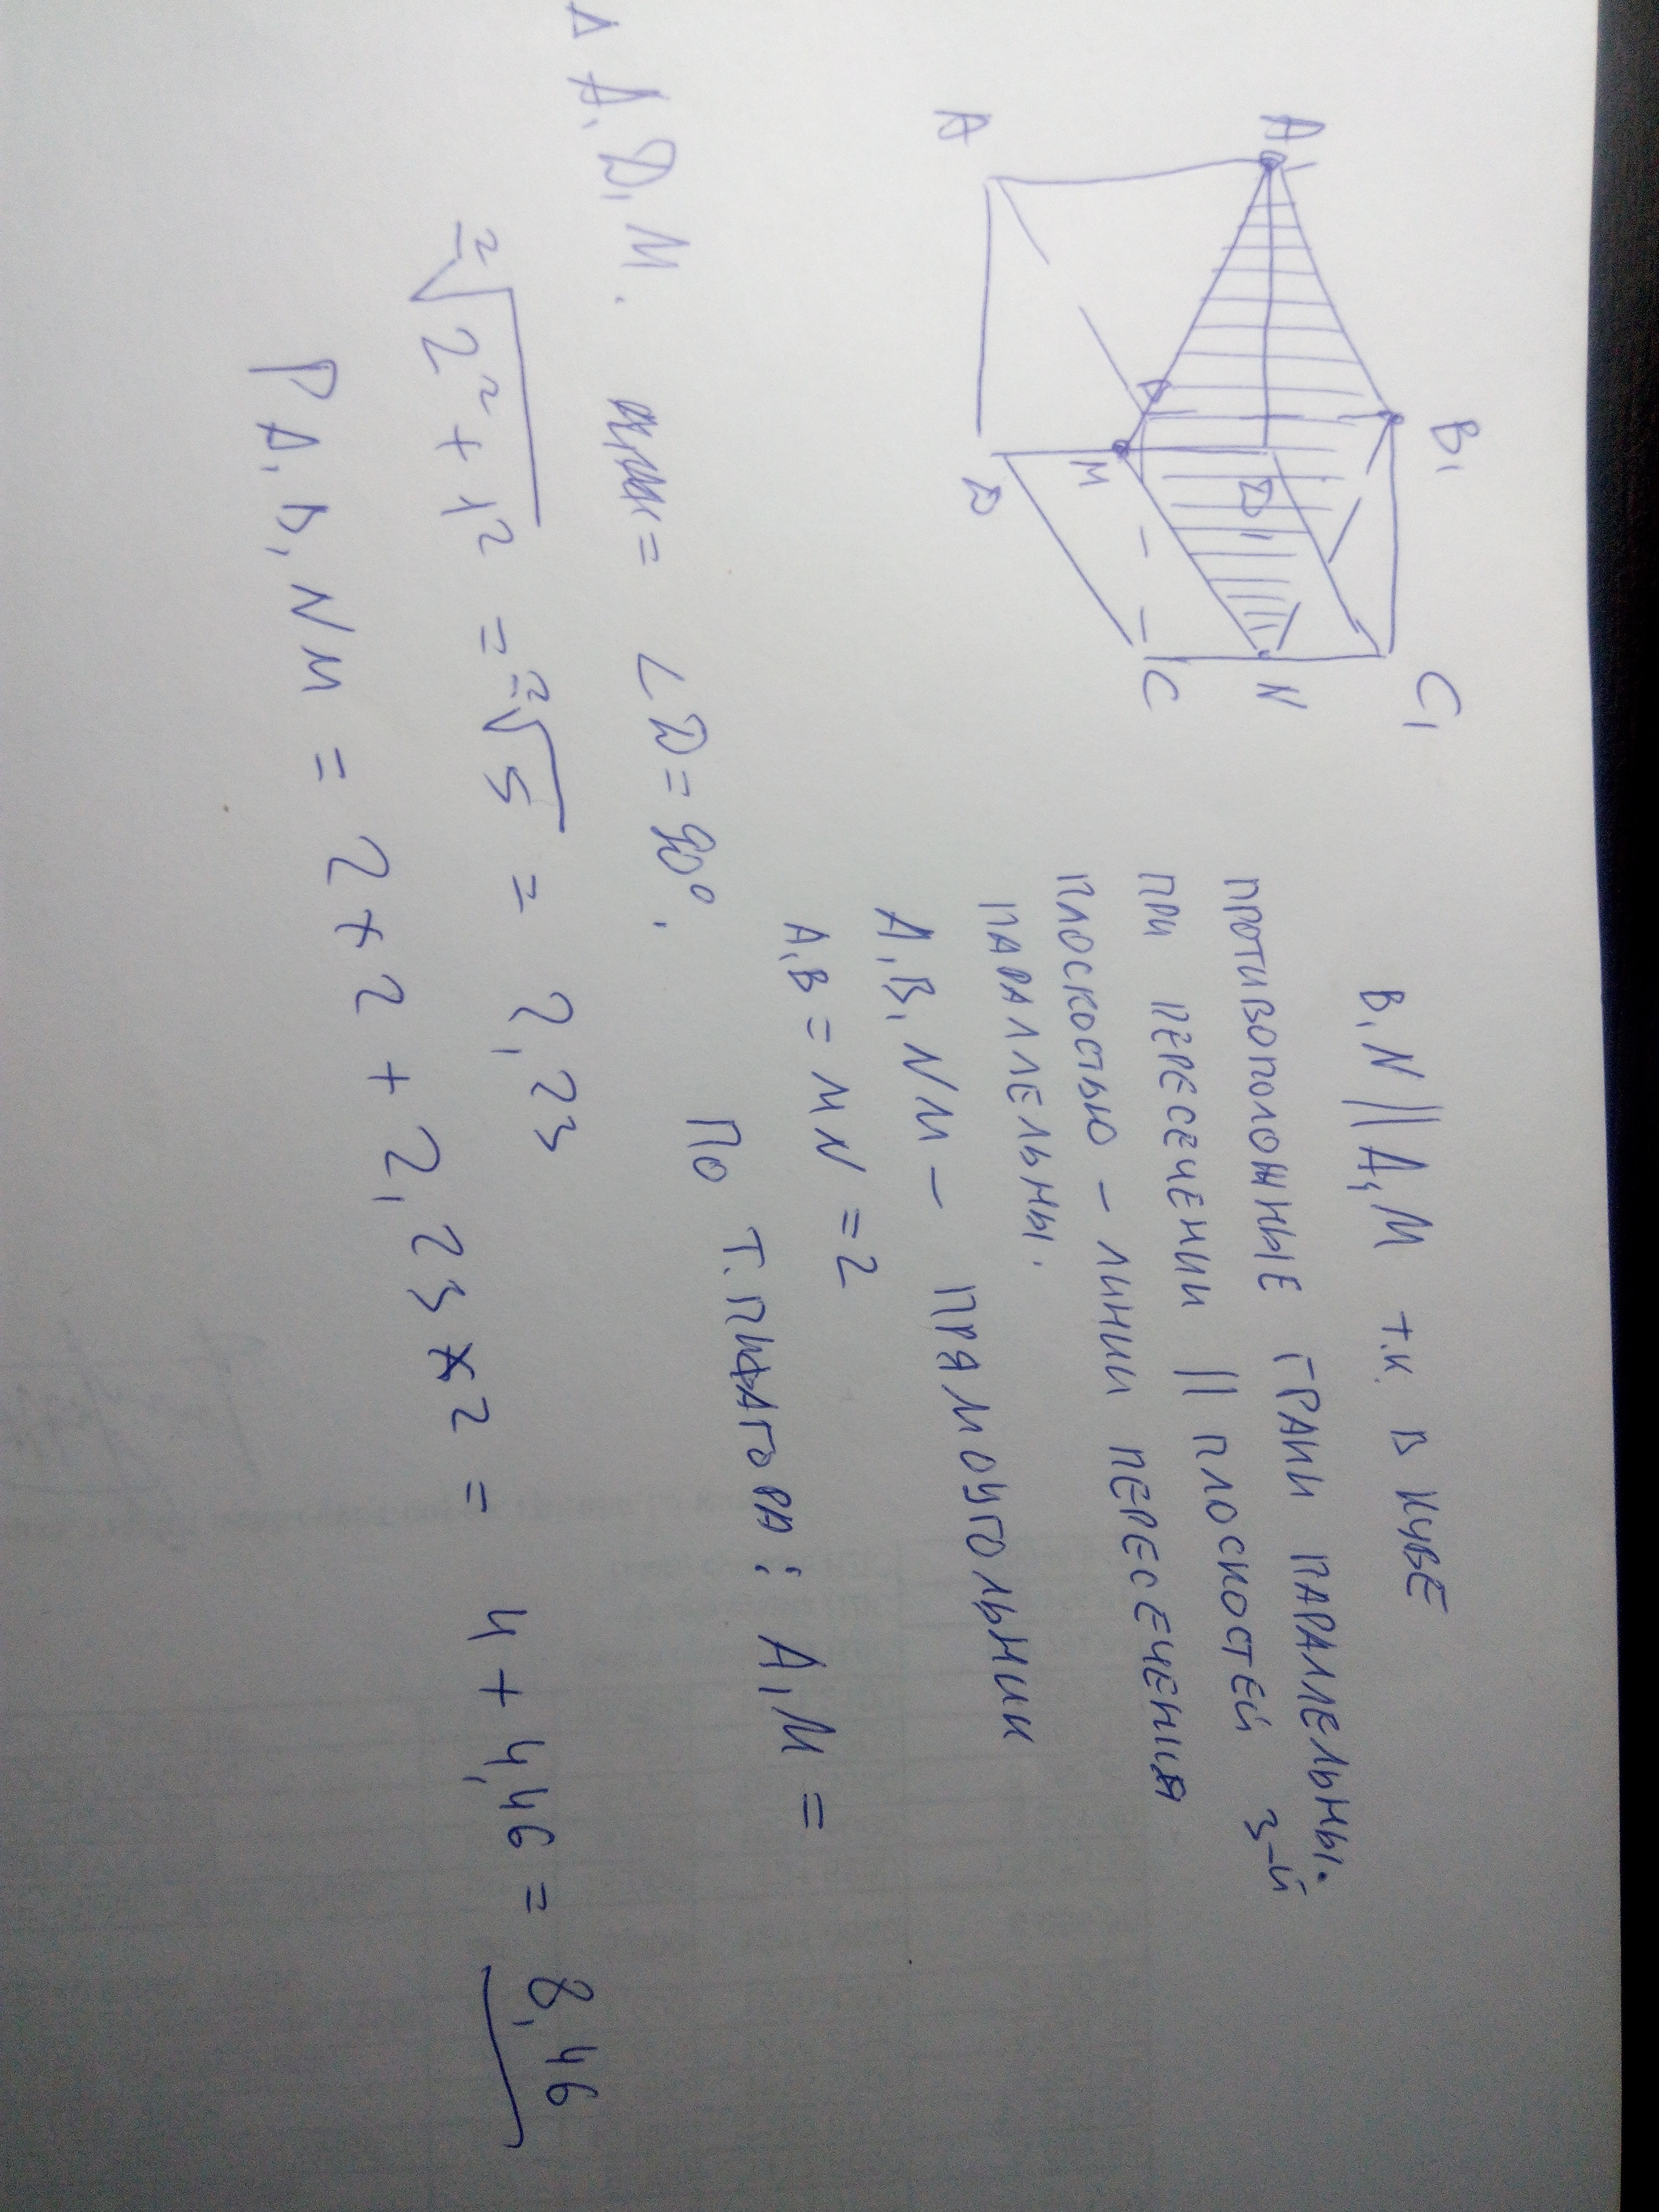 A₁
B₁
C₁
D₁
N
A
M
D
C
B
B₁N || A₁M т.к. в кубе
противоположные грани паралельны.
при пересечении || плоскостей 3-й
плоскостью – линии пересечения
параллельны.
A₁B₁NM – прямоугольник
A₁B = MN = 2
Δ A₁D₁M. ∠D = 90°. По т. Пифагора: A₁M =
= ²√2² + 1² = ²√5 = 2,23
P A₁B₁NM = 2 × 2 + 2,23 × 2 = 4 + 4,46 = 8,46